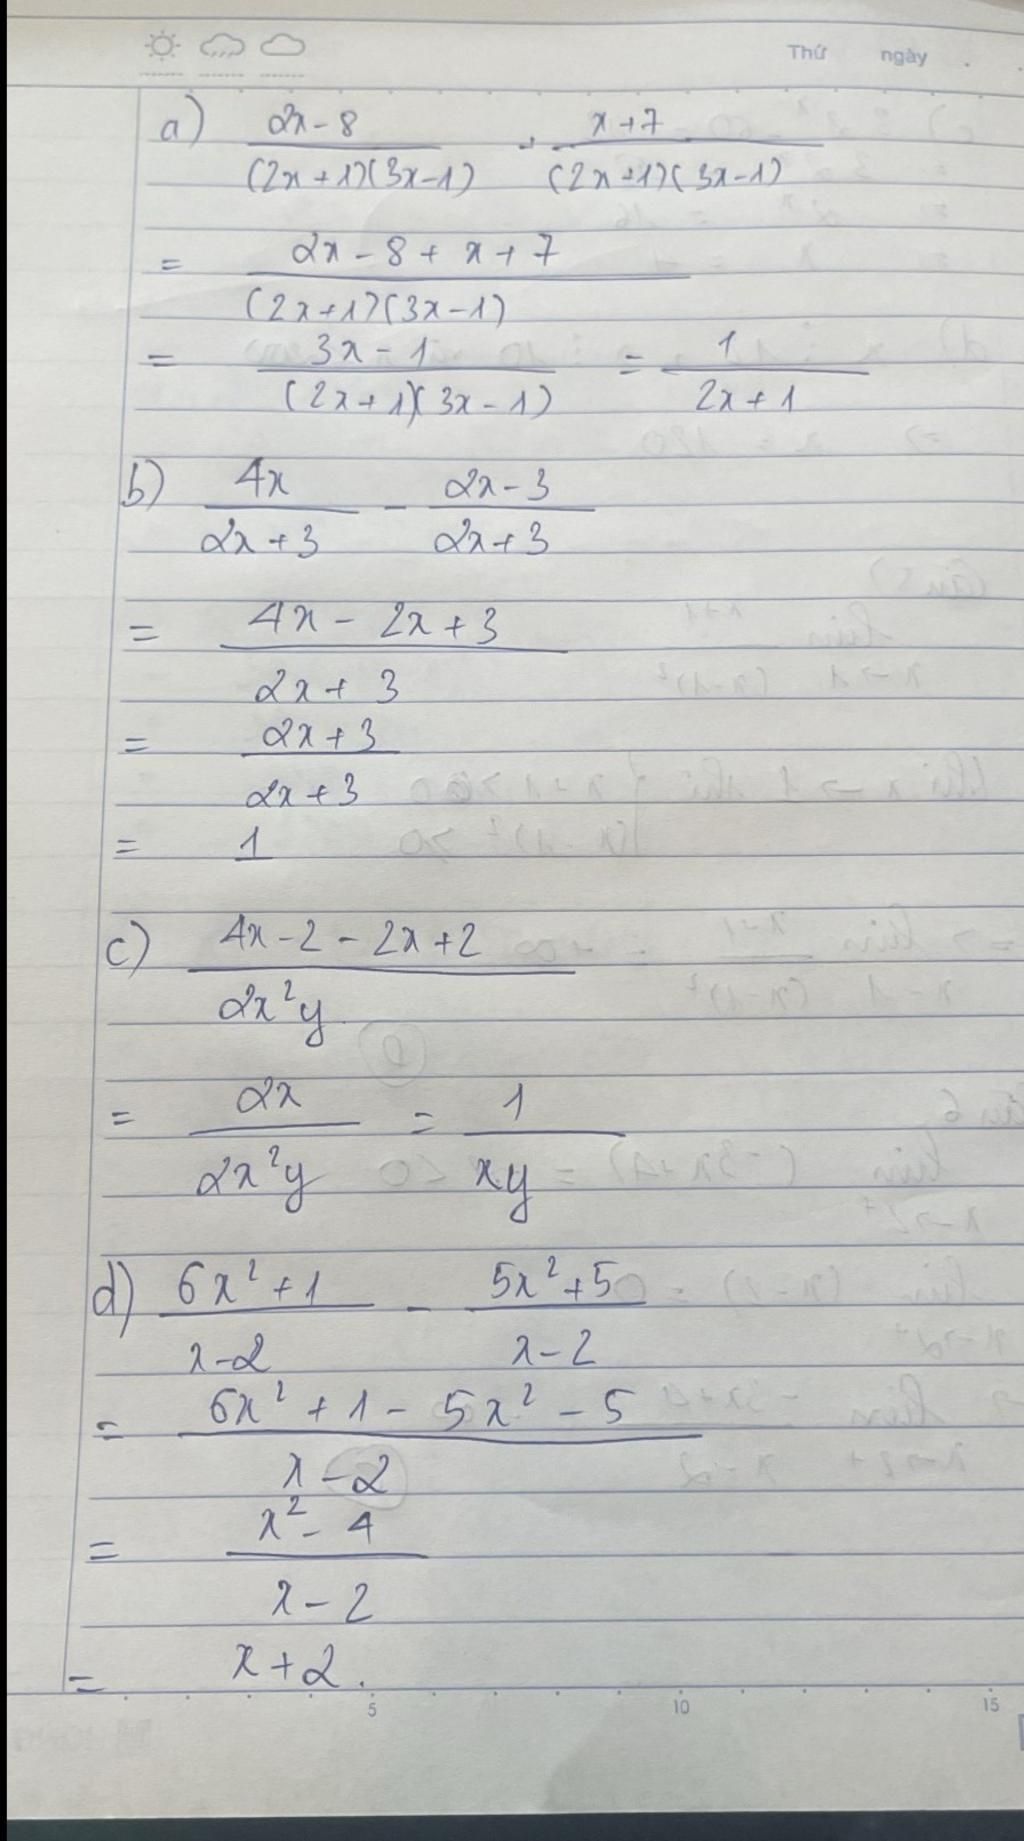 Thứ ngày
a) (2x-8)/((2x+1)(3x-1)) + (x+7)/((2x+1)(3x-1))
= (2x-8+x+7)/((2x+1)(3x-1))
= (3x-1)/((2x+1)(3x-1)) = 1/(2x+1)
b) 4x/(2x+3) - (2x-3)/(2x+3)
= (4x-2x+3)/(2x+3)
= (2x+3)/(2x+3)
= 1
c) (4x-2-2x+2)/(2x²y)
= 2x/(2x²y) = 1/(xy)
d) (6x²+1)/(x-2) - (5x²+5)/(x-2)
= (6x²+1-5x²-5)/(x-2)
= (x²-4)/(x-2)
= x+2.
5 10 15